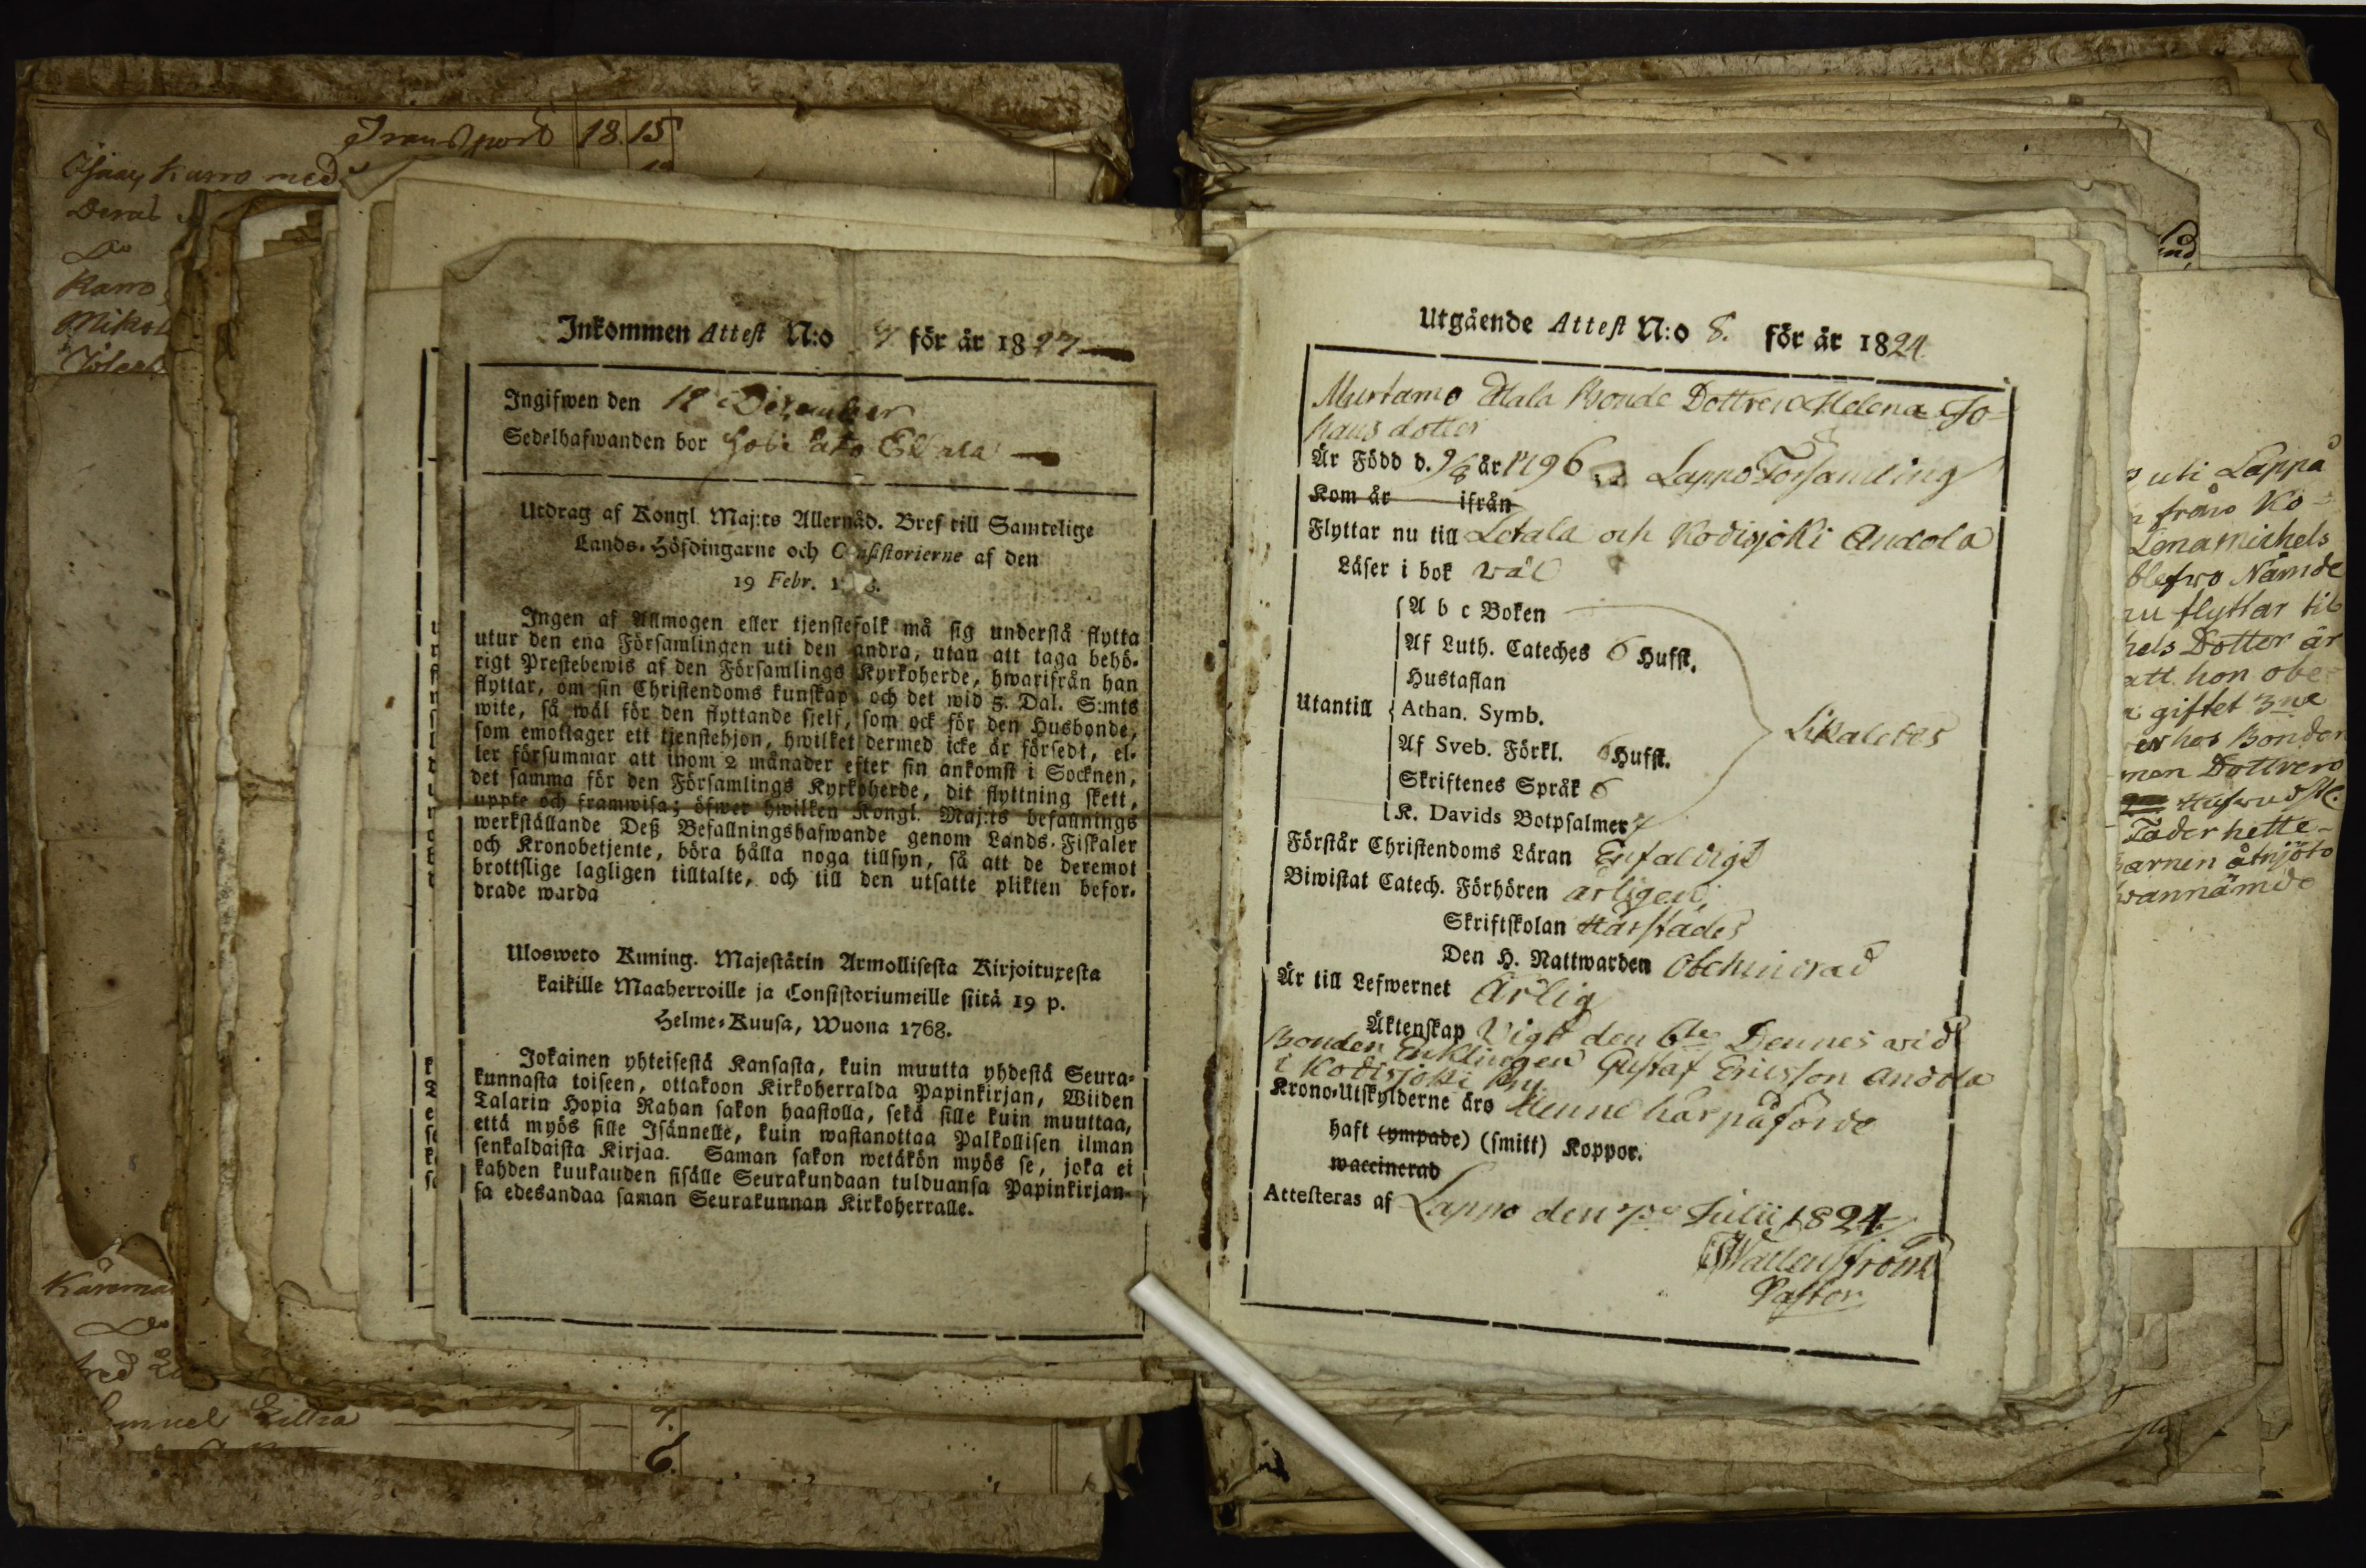 Transport 18. 15
Karro med
Deral
Do
Karro
Inkommen Attest N:o 7 för år 1827
Ingifwen den 12 December
Sedelhafwanden bor
Utdrag af Kongl. Maj:ts Allernåd. Bref till Samtelige
Lands-Höfdingarne och Consistorierne af den
19 Febr.
Ingen af Allmogen eller tjenstefolk må sig understå flytta
utur den ena Församlingen uti den andra, utan att taga behö-
rigt Prestebewis af den Församlings Kyrkoherde, hwarifrån han
flyttar, om sin Christendoms kunskap, och det wid 5. Dal. S:mts
wite, så wäl för den flyttande sjelf, som ock för den Husbonde,
som emottager ett tjenstehjon, hwilket dermed icke är försedt, el-
ler försummar att inom 2 månader efter sin ankomst i Socknen,
det samma för den Församlings Kyrkoherde, dit flyttning skett,
uppte och framwisa; öfwer hwilken Kongl. Maj:ts befallnings
werkställande Deß Befallningshafwande genom Lands-Fiskaler
och Kronobetjente, böra hålla noga tillsyn, så att de deremot
brottslige lagligen tilltalte, och till den utsatte plikten befor-
drade warda
Ulosweto Kuning. Majestätin Armollisesta Kirjoituxesta
kaikille Maaherroille ja Consistoriumeille siitä 19 p.
Helme-Kuusa, Wuona 1768.
Jokainen yhteisestä Kansasta, kuin muutta yhdestä Seura-
kunnasta toiseen, ottakoon Kirkoherralda Papinkirjan, Wiiden
Talarin Hopia Rahan sakon haastolla, sekä sille kuin muuttaa,
että myös sille Isännelle, kuin wastanottaa Palkollisen ilman
senkaldaista Kirjaa. Saman sakon wetäkön myös se, joka ei
kahden kuukauden sisälle Seurakundaan tulduansa Papinkirjan-
sa edesandaa saman Seurakunnan Kirkoherralle.
Samuel 7.
6.
Utgående Attest N:o 8. för år 1824.
Murtamo Alala Bonde Dottren Helena Jo-
hans dotter
Är Född d. 9/8 år 1796 i Lappo Församling
Kom år ifrån
Flyttar nu till Letala och Kodisjoki Andola
Läser i bok wäl
A b c Boken
Af Luth. Cateches 6 Hufst.
Hustaflan
Utantill Athan. Symb. Likaledes
Af Sveb. Förkl. 6 Hufst.
Skriftenes Språk 6
K. Davids Botpsalmer 7
Förstår Christendoms Läran Enfaldigt
Biwistat Catech. Förhören årligen
Skriftskolan Härstädes
Den H. Nattwarden Obehindrad
Är till Lefwernet Ärlig
Äktenskap Vigt den 6te Dennes wid
Bonden Enklingen Gustaf Ericsson Andola
i Kodisjoki By
Krono-Utskylderne äro Henne härpåförde
haft (ympade) (smitt) Koppor.
waccinerad
Attesteras af Lappo den 7de Julii 1824.
Wallenström
Pastor
uti Lappå
från Ko-
Lena Michels
blefwo Nämde
nu flyttar til
hels Dotter är
att hon obe-
giftet 3ne
hos Bonden
men Dottren
Fader hette
barnen åtnjöto